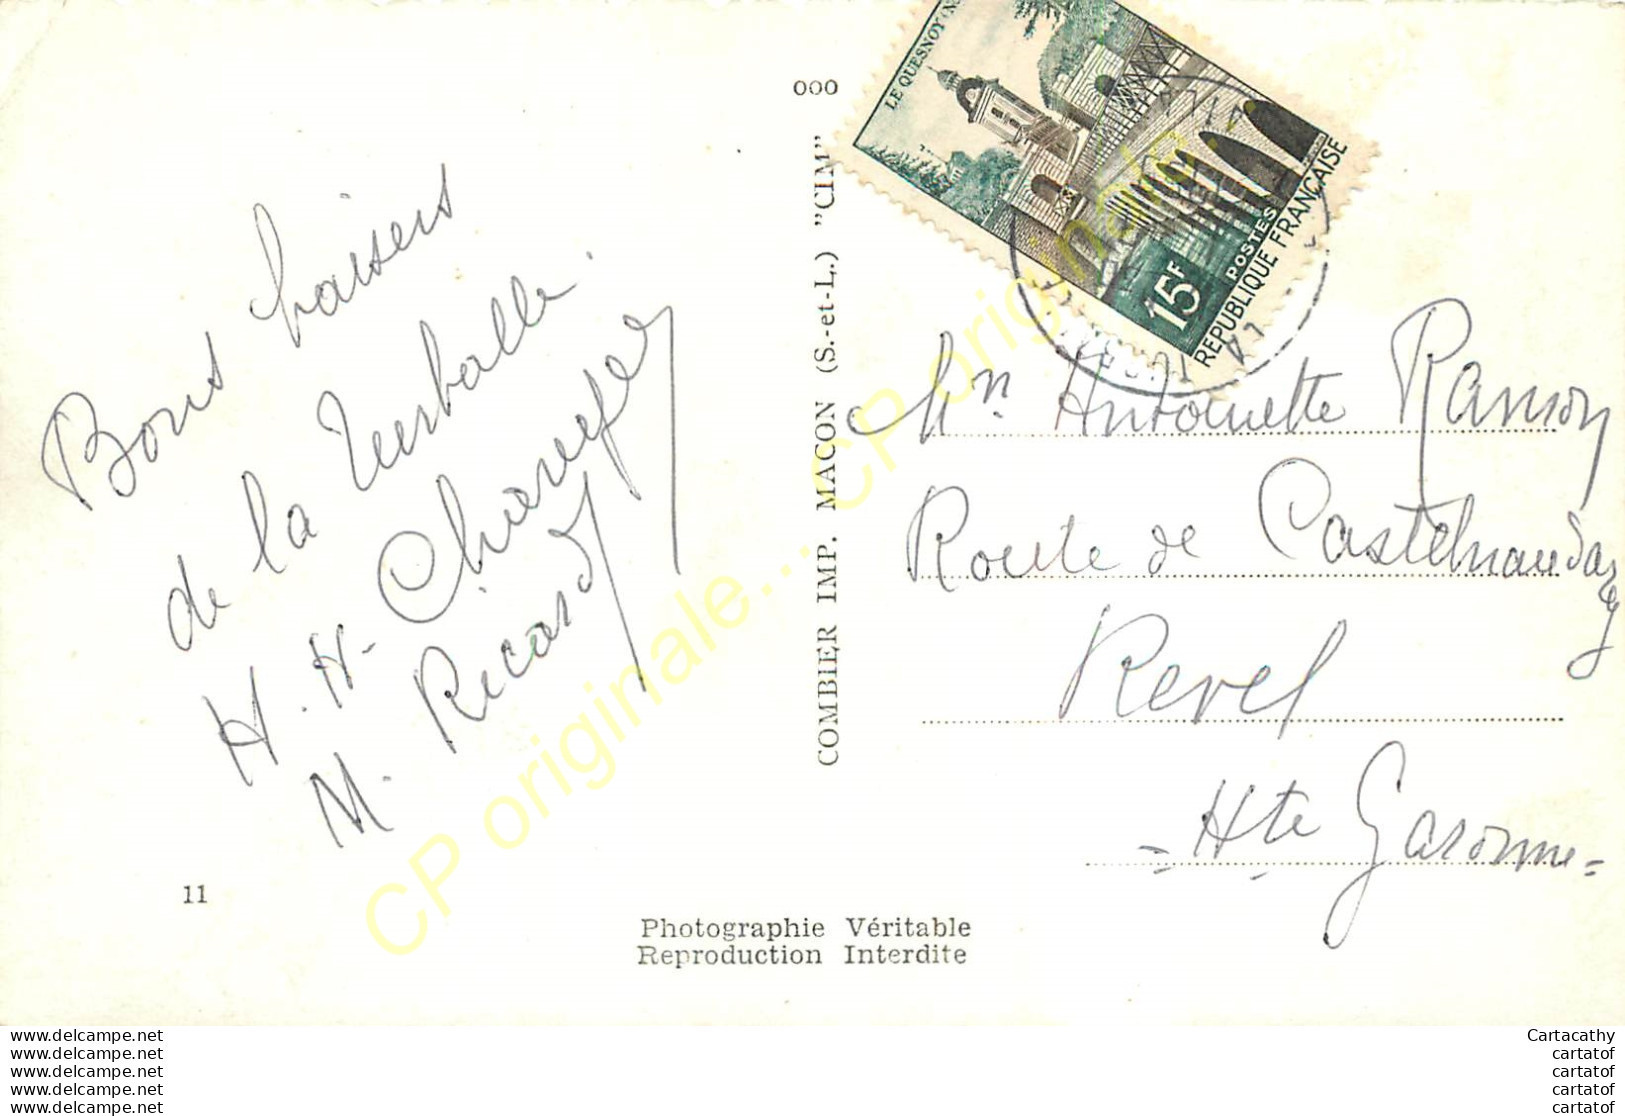 Bons baisers
de la Turballe.
H. H. 
M. Ricard
11
ooo
COMBIER IMP. MACON (S.-et-L.) "CIM"
Photographie Véritable
Reproduction Interdite
LE QUESNOY (N
15F
POSTES
REPUBLIQUE FRANÇAISE
Antoinette Ranson
Route de Castelnaudary
Revel
= Hte Garonne =
CP originale... CP originale...
www.delcampe.net
www.delcampe.net
www.delcampe.net
www.delcampe.net
www.delcampe.net
Cartacathy
cartatof
cartatof
cartatof
cartatof